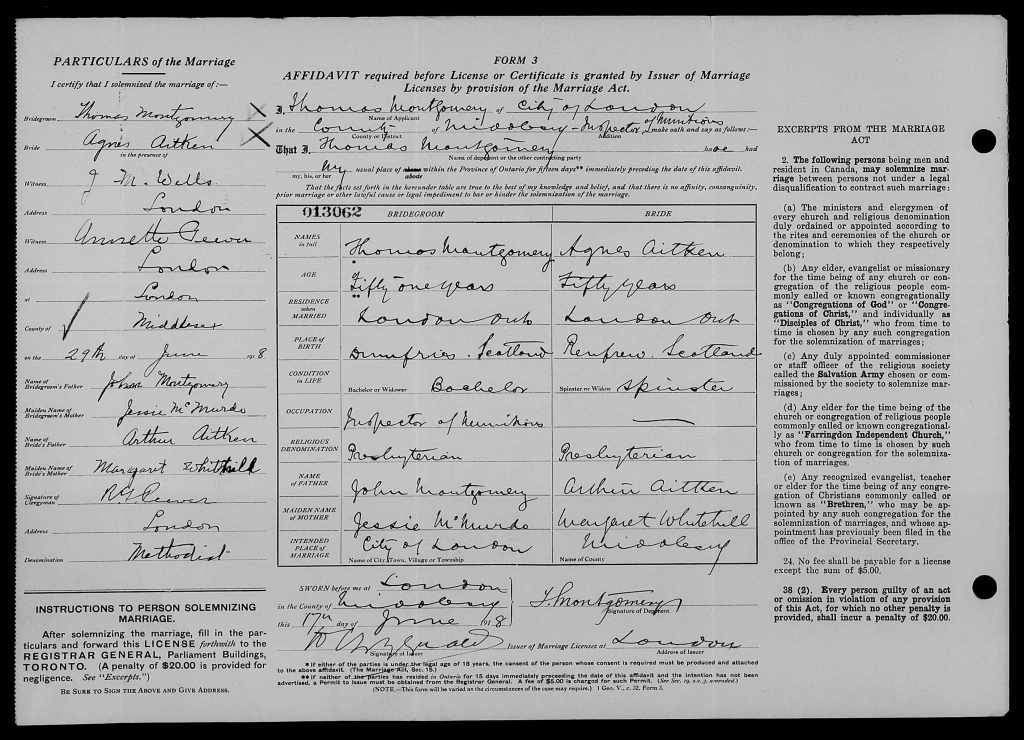 PARTICULARS of the Marriage
I certify that I solemnized the marriage of:—
Bridegroom Thomas Montgomery
Bride Agnes Aitken
in the presence of
Witness J M. Wells
Address London
Witness Annette
Address London
at London
County of Middlesex
on the 29th day of June 1918
Name of Bridegroom's Father John Montgomery
Maiden Name of Bridegroom's Mother Jessie McMurdo
Name of Bride's Father Arthur Aitken
Maiden Name of Bride's Mother Margaret Whitehill
Signature of Clergyman
Address London
Denomination Methodist
INSTRUCTIONS TO PERSON SOLEMNIZING
MARRIAGE.
After solemnizing the marriage, fill in the par-
ticulars and forward this LICENSE forthwith to the
REGISTRAR GENERAL, Parliament Buildings,
TORONTO. (A penalty of $20.00 is provided for
negligence. See "Excerpts.")
BE SURE TO SIGN THE ABOVE AND GIVE ADDRESS.
FORM 3
AFFIDAVIT required before License or Certificate is granted by Issuer of Marriage
Licenses by provision of the Marriage Act.
I, Thomas Montgomery of City of London
Name of Applicant
in the County of Middlesex - Inspector of Munitions, make oath and say as follows:—
County or District Addition
That I, Thomas Montgomery have had
Name of deponent or the other contracting party
my usual place of abode within the Province of Ontario for fifteen days** immediately preceding the date of this affidavit.
my, his, or her abode
That the facts set forth in the hereunder table are true to the best of my knowledge and belief, and that there is no affinity, consanguinity,
prior marriage or other lawful cause or legal impediment to bar or hinder the solemnization of the marriage.
013062 BRIDEGROOM BRIDE
NAMES in full Thomas Montgomery Agnes Aitken
AGE * Fifty one years Fifty years
RESIDENCE when MARRIED ** London Ont London Ont
PLACE of BIRTH Dumfries. Scotland Renfrew. Scotland
CONDITION in LIFE Bachelor or Widower Bachelor Spinster or Widow Spinster
OCCUPATION Inspector of Munitions —
RELIGIOUS DENOMINATION Presbyterian Presbyterian
NAME OF FATHER John Montgomery Arthur Aitken
MAIDEN NAME of MOTHER Jessie McMurdo Margaret Whitehill
INTENDED PLACE of MARRIAGE City of London Middlesex
Name of City, Town, Village or Township Name of County
SWORN before me at London
in the County of Middlesex T. Montgomery
Signature of Deponent
this 17th day of June 1918
Issuer of Marriage Licenses at London
Signature of Issuer Address of Issuer
* If either of the parties is under the legal age of 18 years, the consent of the person whose consent is required must be produced and attached
to the above affidavit. (The Marriage Act, Sec. 15.)
** If neither of the parties has resided in Ontario for 15 days immediately preceding the date of this affidavit and the intention has not been
advertised, a Permit to Issue must be obtained from the Registrar General. A fee of $5.00 is charged for such Permit. (See Sec. 19, s.s. 3, amended.)
(NOTE.—This form will be varied as the circumstances of the case may require.) 1 Geo. V., c. 32, Form 3.
EXCERPTS FROM THE MARRIAGE
ACT
2. The following persons being men and
resident in Canada, may solemnize mar-
riage between persons not under a legal
disqualification to contract such marriage:
(a) The ministers and clergymen of
every church and religious denomination
duly ordained or appointed according to
the rites and ceremonies of the church or
denomination to which they respectively
belong;
(b) Any elder, evangelist or missionary
for the time being of any church or con-
gregation of the religious people com-
monly called or known congregationally
as "Congregations of God" or "Congre-
gations of Christ," and individually as
"Disciples of Christ," who from time to
time is chosen by any such congregation
for the solemnization of marriages;
(c) Any duly appointed commissioner
or staff officer of the religious society
called the Salvation Army chosen or com-
missioned by the society to solemnize mar-
riages;
(d) Any elder for the time being of the
church or congregation of religious people
commonly called or known congregational-
ly as "Farringdon Independent Church,"
who from time to time is chosen by such
church or congregation for the solemniza-
tion of marriages.
(e) Any recognized evangelist, teacher
or elder for the time being of any congre-
gation of Christians commonly called or
known as "Brethren," who may be ap-
pointed by any such congregation for the
solemnization of marriages, and whose ap-
pointment has previously been filed in the
office of the Provincial Secretary.
24. No fee shall be payable for a license
except the sum of $5.00.
38 (2). Every person guilty of an act
or omission in violation of any provision
of this Act, for which no other penalty is
provided, shall incur a penalty of $20.00.